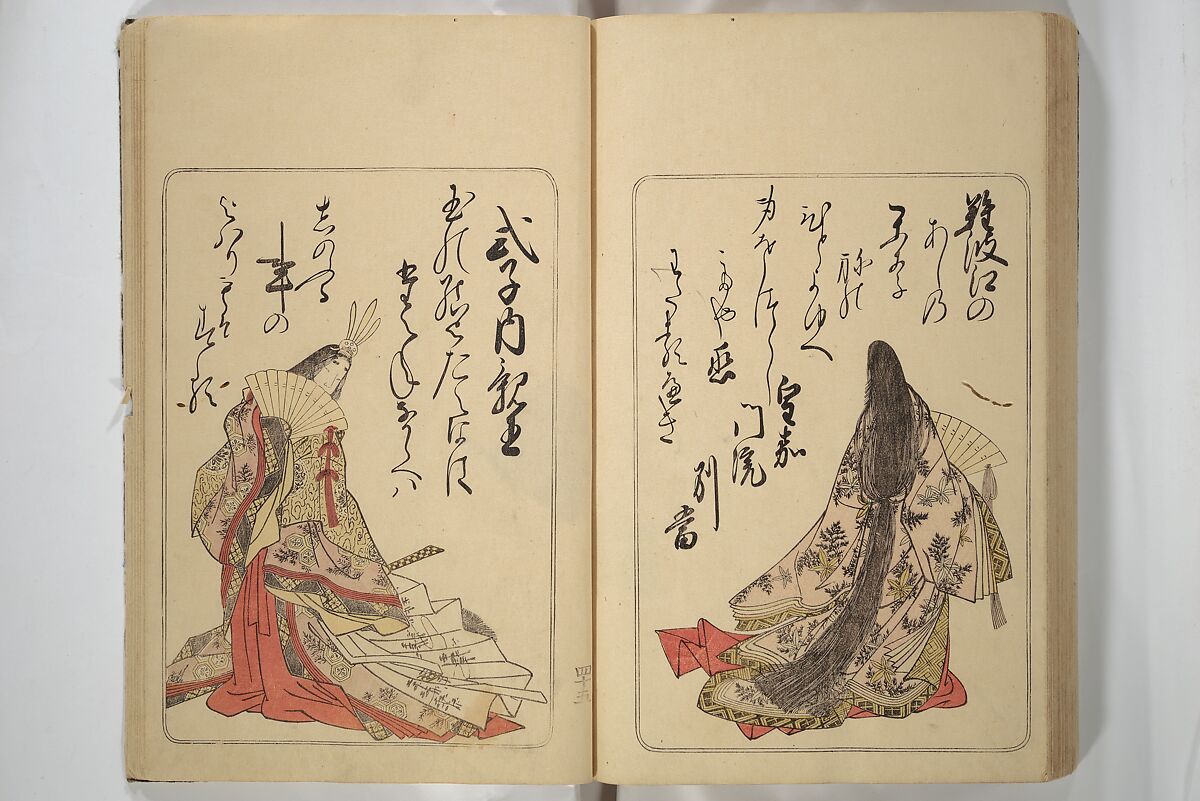 難波江の
あしの
かり
ねの
ひとよゆへ
身をつくし
てや恋
わたるべき
皇嘉
門院
別
當
式子内親王
玉の緒よたえなは
たえねなからへは
しのふる
事の
よはりもそ
する
四十五